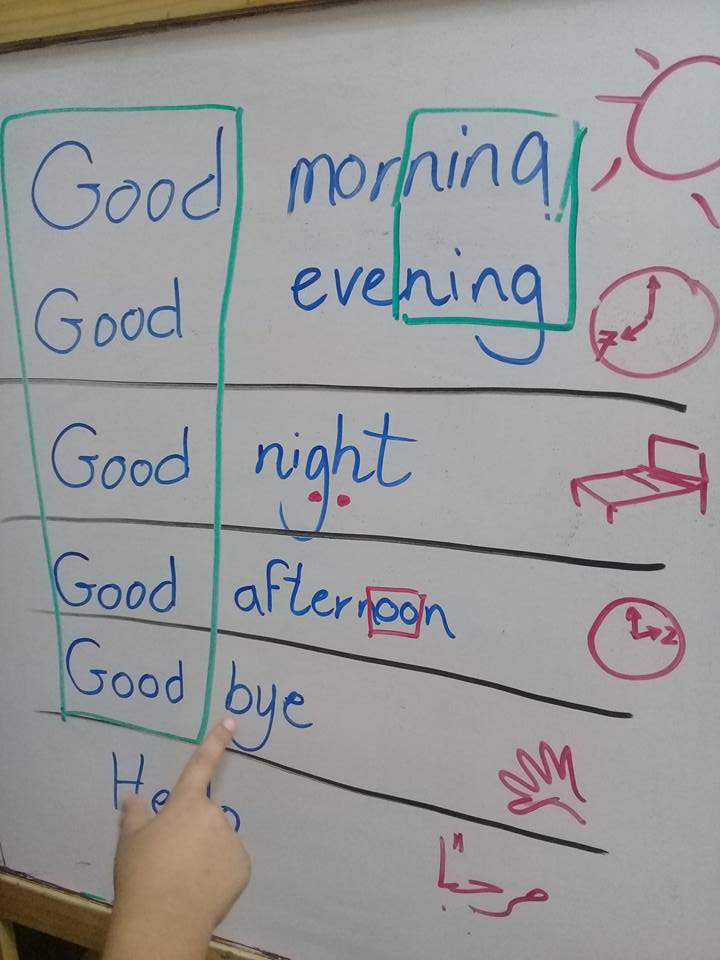 Good morning!
Good evening
7
Good night
Good afternoon
2
Good bye
Hello
مرحباً